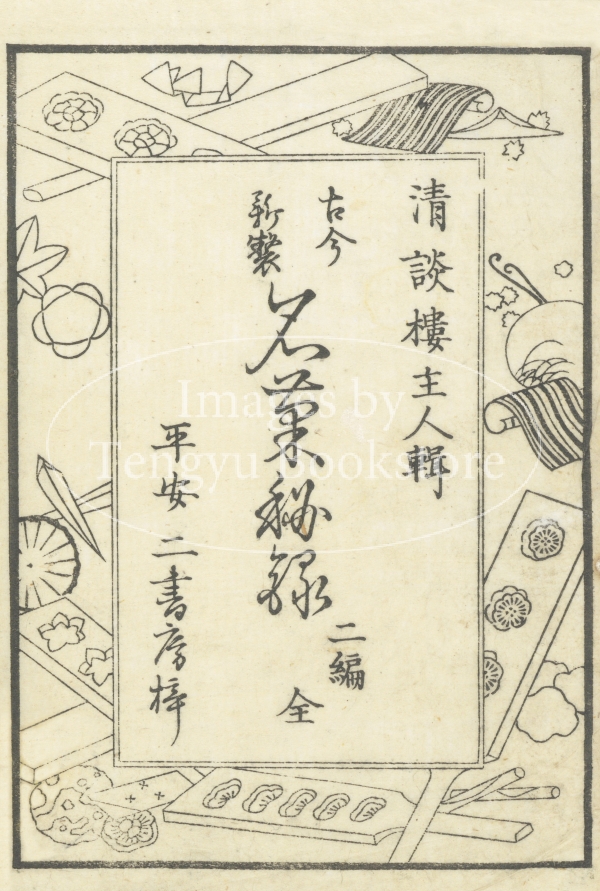 清談樓主人輯
古今
新製
名菓秘録
二編
全
平安 二書房梓
Images by
Tengyu Bookstore